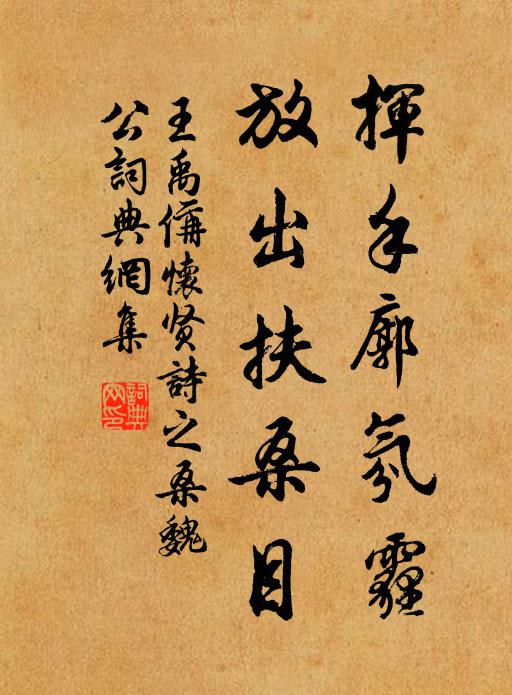 揮手廓氛霾
放出扶桑目
王禹偁懷賢詩之桑魏
公詞典網集
詞典网印